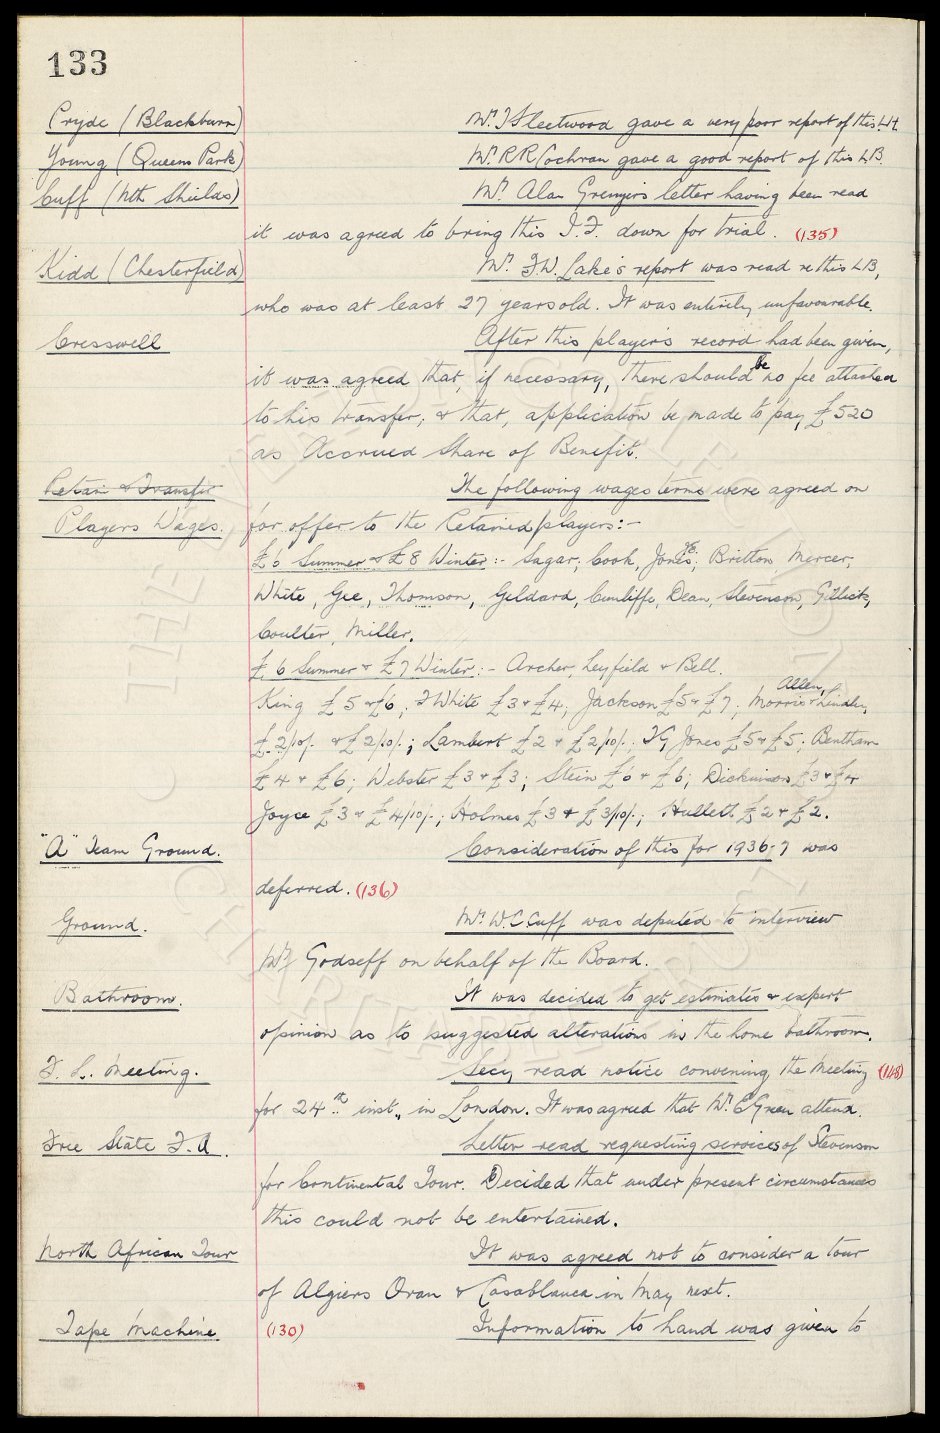 133
Pryde (Blackburn) Mr. J Fleetwood gave a very poor report of this W.H.
Young (Queens Park) Mr. R R Cochran gave a good report of this L B.
Cuff (Nth Shields) Mr. Alan Grenyers letter having been read
it was agreed to bring this I.F. down for trial. (135)
Kidd (Chesterfield) Mr. F.W. Lake's report was read re this L B,
who was at least 27 years old. It was entirely unfavourable.
Cresswell After this players record had been given,
it was agreed that, if necessary, there should be no fee attached
to his transfer; & that, application be made to pay £520
as Accrued Share of Benefit.
Retain & Transfer The following wages terms were agreed on
Players Wages. for offer to the Retained players:-
£6 Summer & £8 Winter:- Sagar; Cook, Jones; Britton, Mercer,
White, Gee, Thomson, Geldard, Cunliffe, Dean, Stevenson, Gillick,
Coulter, Miller.
£6 Summer & £7 Winter:- Archer, Leyfield & Bell.
King £5 & £6; T White £3 & £4; Jackson £5 & £7; Morris Allen, & Lindley,
£2/10/- & £2/10/-; Lambert £2 & £2/10/-; T G Jones £5 & £5; Bentham
£4 & £6; Webster £3 & £3; Stein £6 & £6; Dickinson £3 & £4
Joyce £3 & £4/10/-; Holmes £3 & £3/10/-; Hullett £2 & £2.
"A" Team Ground. Consideration of this for 1936-7 was
deferred. (136)
Ground. Mr. W.C. Cuff was deputed to interview
Mr Godseff on behalf of the Board.
Bathroom. It was decided to get estimates & expert
opinion as to suggested alterations in the home bathroom.
F. L. Meeting. Secy read notice convening the Meeting (148)
for 24th inst., in London. It was agreed that Mr. E Green attend.
Free State F.A. Letter read requesting services of Stevenson
for Continental Tour. Decided that under present circumstances
this could not be entertained.
North African Tour It was agreed not to consider a tour
of Algiers Oran & Casablanca in May next.
Tape Machine (130) Information to hand was given to